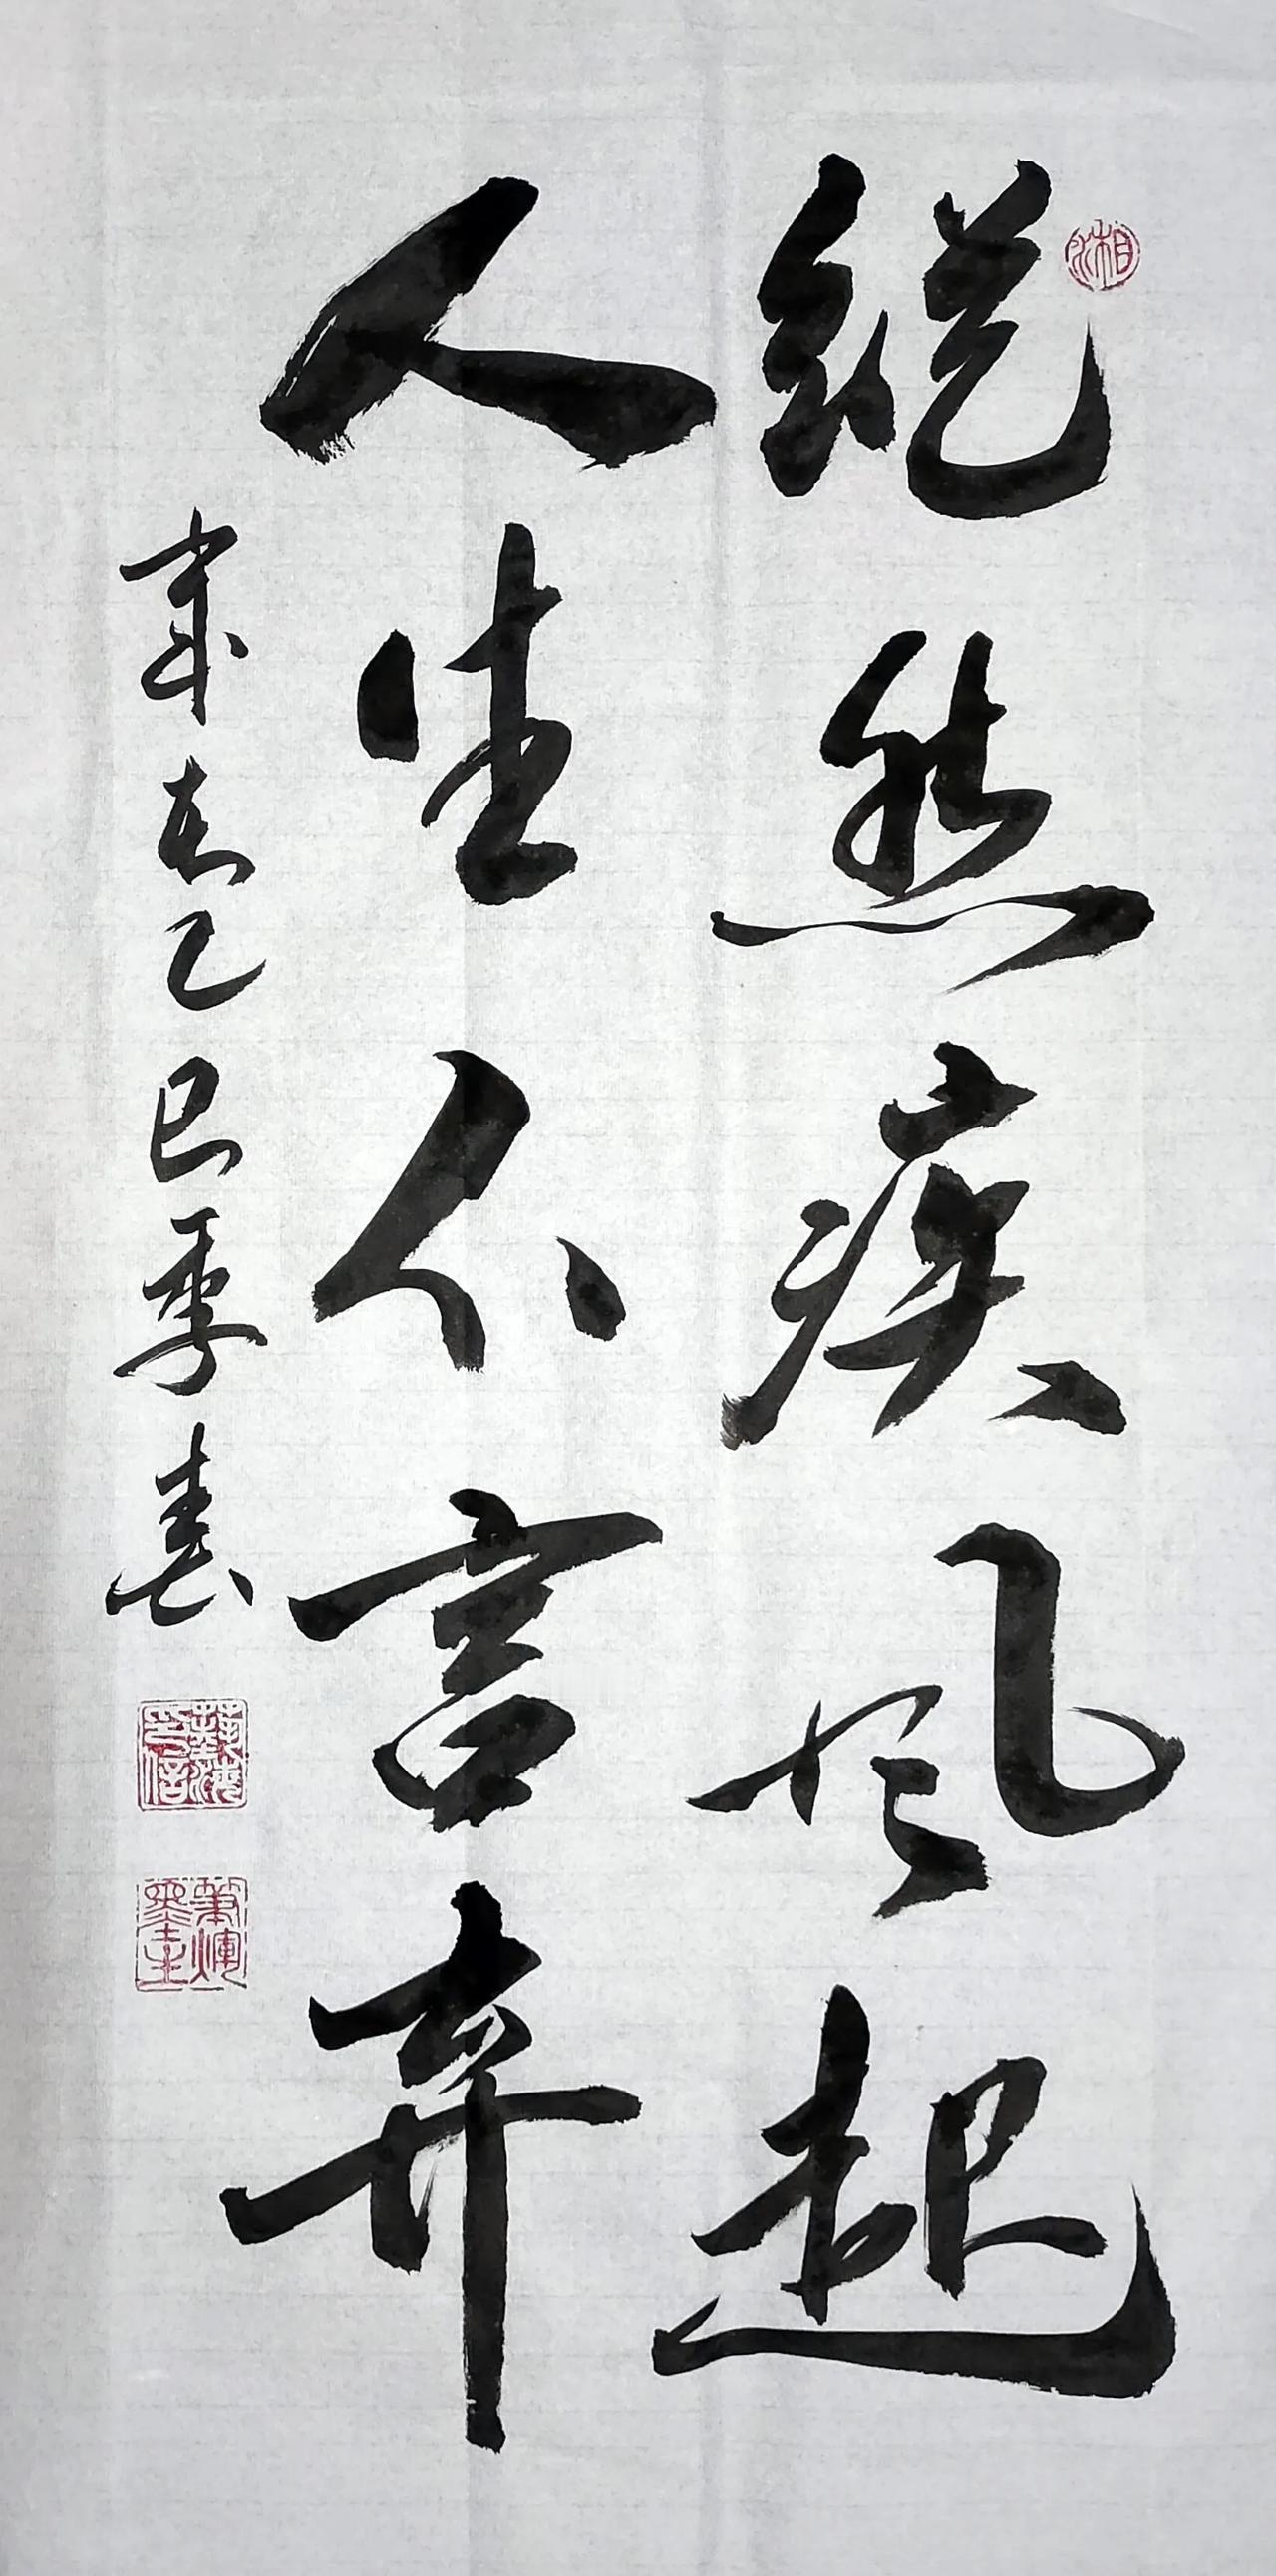 纵然疾风起
人生不言弃
岁在乙巳季春